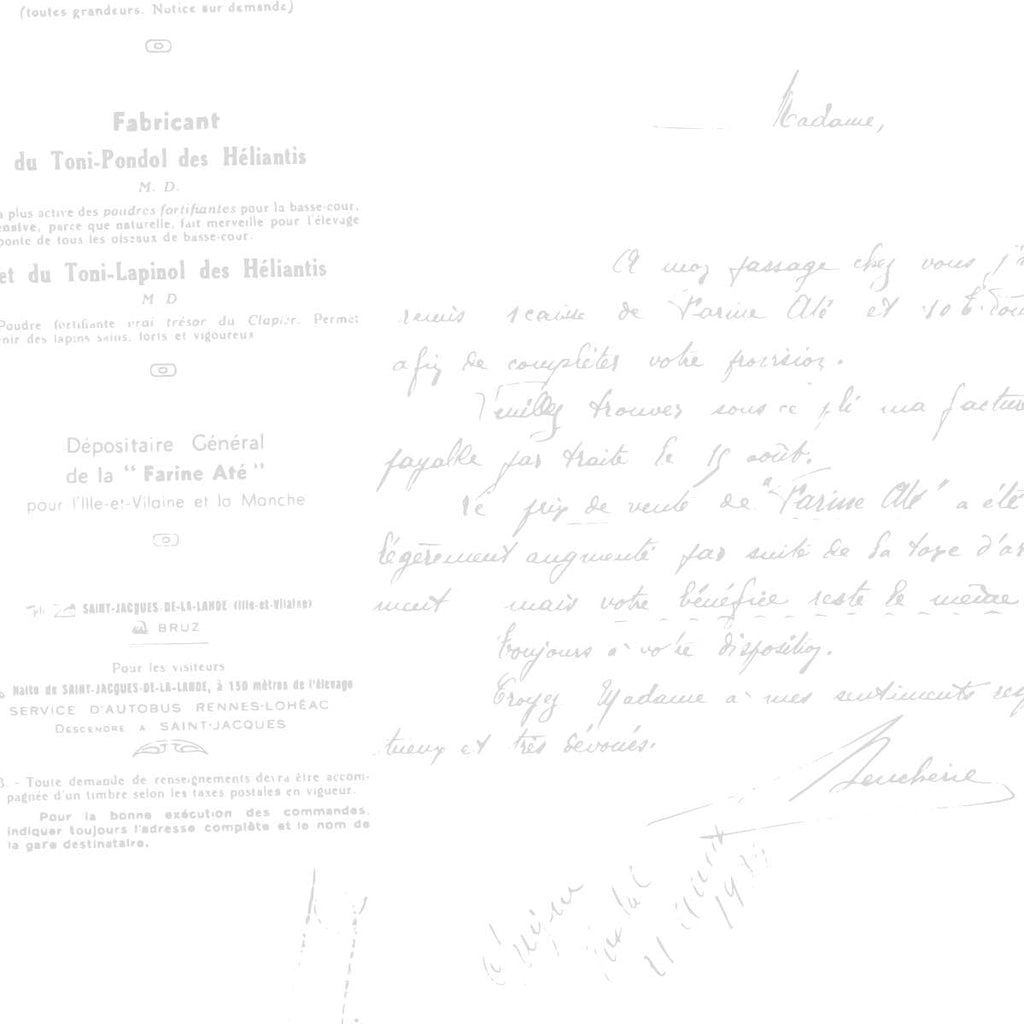 (toutes grandeurs. Notice sur demande)
Fabricant
du Toni-Pondol des Héliantis
M. D.
plus active des poudres fortifiantes pour la basse-cour,
parce que naturelle, fait merveille pour l'élevage
ponte de tous les oiseaux de basse-cour.
et du Toni-Lapinol des Héliantis
M D
Poudre fortifiante vrai trésor du Clapier. Permet
des lapins sains, forts et vigoureux
Dépositaire Général
de la "Farine Até"
pour l'Ille-et-Vilaine et la Manche
SAINT-JACQUES-DE-LA-LANDE (Ille-et-Vilaine)
BRUZ
Pour les visiteurs
Halte de SAINT-JACQUES-DE-LA-LANDE, à 150 mètres de l'élevage
SERVICE D'AUTOBUS RENNES-LOHÉAC
DESCENDRE A SAINT-JACQUES
B. - Toute demande de renseignements devra être accom-
pagnée d'un timbre selon les taxes postales en vigueur.
Pour la bonne exécution des commandes,
indiquer toujours l'adresse complète et le nom de
la gare destinataire.
Madame,
A mon passage chez vous
remis 1 caisse de Farine Até et 10
afin de compléter votre provision.
Veuillez trouver sous ce pli ma
payable par traite le 15 août.
Le prix de vente de "Farine Até" a été
légèrement augmenté par suite de la taxe
ment mais votre bénéfice reste le même
Toujours à votre disposition.
Croyez Madame à mes sentiments
tueux et très dévoués.